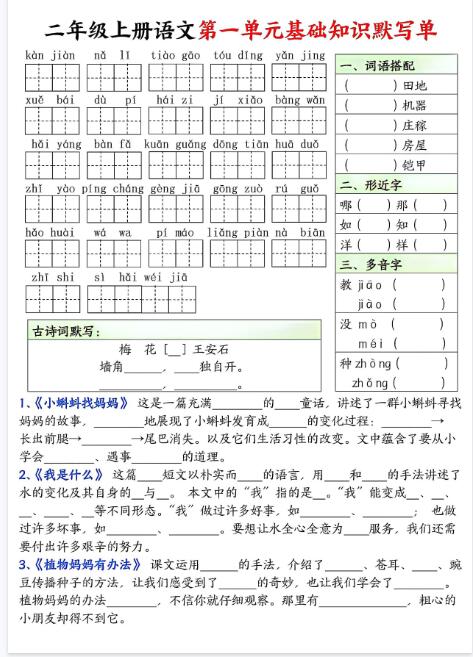 二年级上册语文第一单元基础知识默写单
kàn jiàn nǎ lǐ tiào gāo tóu dǐng yǎn jing
xuě bái dù pí hái zi jí xiǎo bàng wǎn
hǎi yáng bàn fǎ kuān guǎng dōng tiān huā duǒ
zhǐ yào píng cháng gèng jiā gōng zuò rú guǒ
hǎo huài wá wa pí máo liǎng piàn nà biān
zhī shi sì hǎi wéi jiā
一、词语搭配
( )田地
( )机器
( )庄稼
( )房屋
( )铠甲
二、形近字
哪( )那( )
如( )知( )
洋( )样( )
三、多音字
教 jiāo ( )
jiào ( )
没 mò ( )
méi ( )
种 zhòng ( )
zhǒng ( )
古诗词默写：
梅 花 [__] 王安石
墙角______，____独自开。
________，________。
1、《小蝌蚪找妈妈》 这是一篇充满______的____童话，讲述了一群小蝌蚪寻找
妈妈的故事，______地展现了小蝌蚪发育成_____的变化过程：______→
长出前腿→______→尾巴消失。以及它们生活习性的改变。文中蕴含了要从小
学会_____、遇事______的道理。
2、《我是什么》 这篇____短文以朴实而____的语言，用___和____的手法讲述了
水的变化及其自身的__与__。 本文中的“我”指的是__。“我”能变成__、__、
__、____、__等不同形态。“我”做过许多好事，如______、______； 也做
过许多坏事，如______、______。要想让水全心全意为____服务，我们还需
要付出许多艰辛的努力。
3、《植物妈妈有办法》 课文运用_____的手法，介绍了_____、苍耳、____、豌
豆传播种子的方法，让我们感受到了_____的奇妙，也让我们学会了______。
植物妈妈的办法______，不信你就仔细观察。那里有__________，粗心的
小朋友却得不到它。